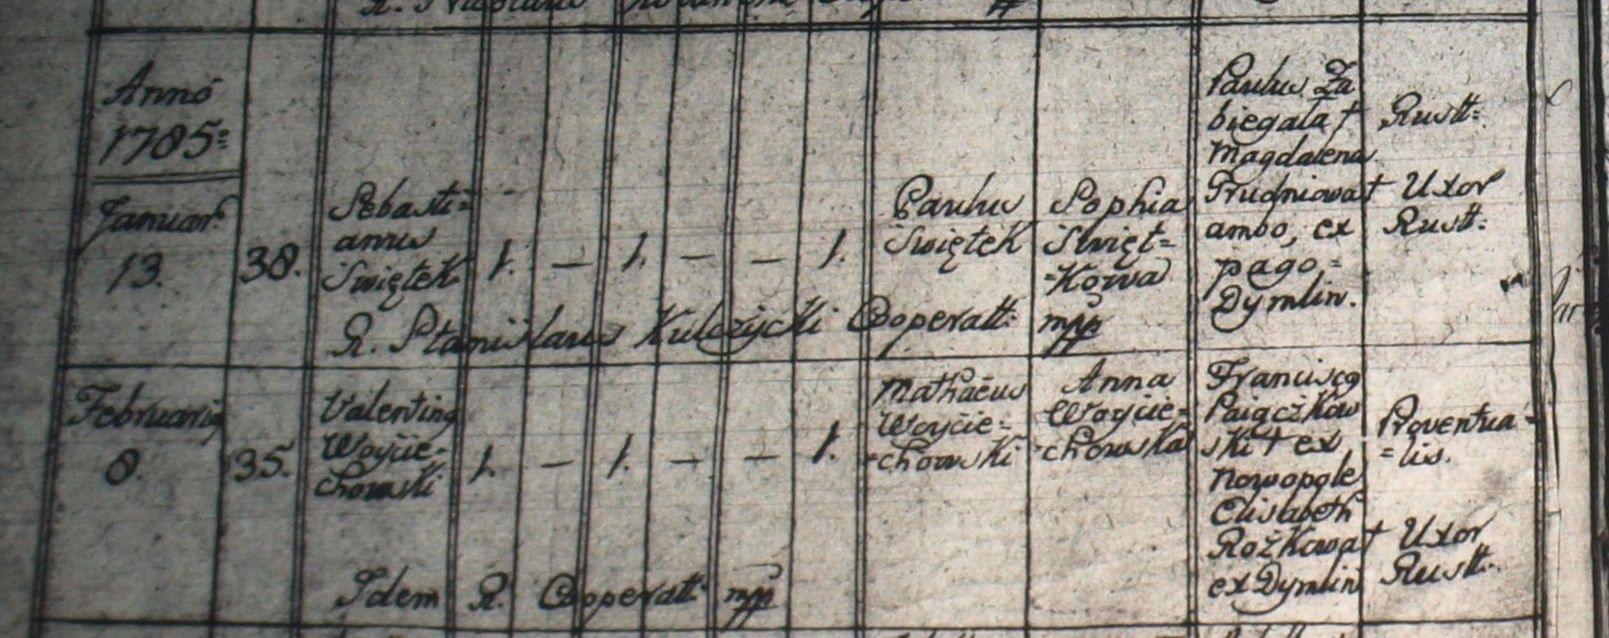 Anno
1785
Januar.
13.
38.
Sebasti=
anus
Swiętek
1. — 1. — — 1.
Paulus
Swiętek
Sophia
Swięt=
=kowa
Paulus Za
biegała †
Magdalena
Trudniowa †
ambo, ex
pago
Dymlin.
Rustt:
Uxor
Rustt:
R. Stanislaus Kulczycki Cooperatt: mpp
Februarii
8.
35.
Valentinus
Woycie=
chowski
1. — 1. — — 1.
Mathaeus
Woycie=
=chowski
Anna
Woycie=
=chowska
Franciscus
Paiączkow
ski † ex
Nowopole
Elisabeth
Rożkowa †
ex Dymlin
Proventua=
=lis.
Uxor
Rustt:
Idem R. Cooperatt: mpp